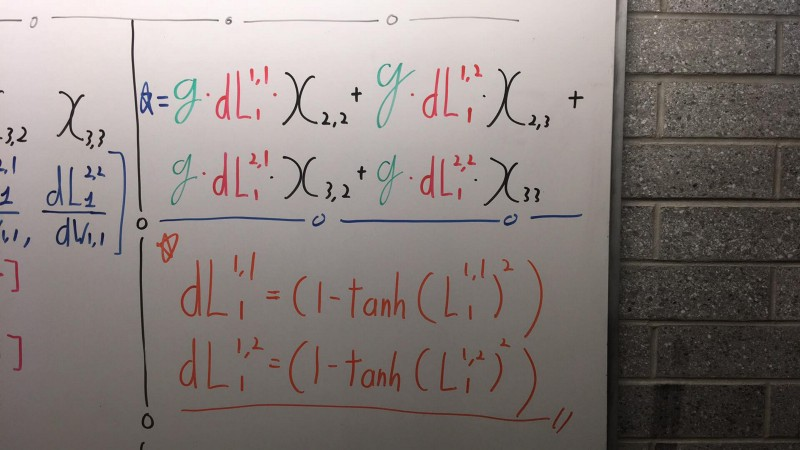 3,2 X3,3
2,1 dL1^2,2
1
W1,1, dW1,1
]
]
☆= g·dL1^1,1·X2,2 + g·dL1^1,2·X2,3 +
g·dL1^2,1·X3,2 + g·dL1^2,2·X33
☆
dL1^1,1 = (1-tanh(L1^1,1)^2)
dL1^1,2 = (1-tanh(L1^1,2)^2)